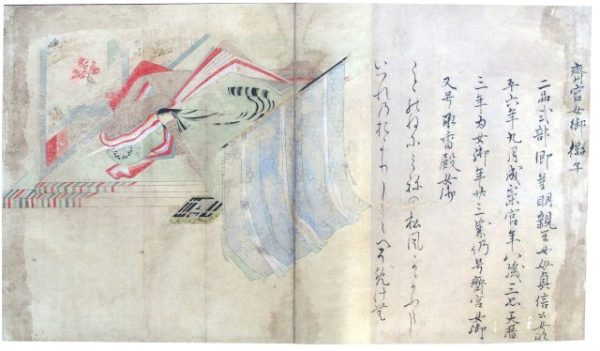 齋宮女御 徽子
二品式部卿重明親王女母貞信公女承
平六年九月為齋宮年八歳 天暦
三年為女御年廿三 仍号齋宮女御
又号承香殿女御
ことのねにみねの松風かよふらし
いつれのをよりしらへそめけむ